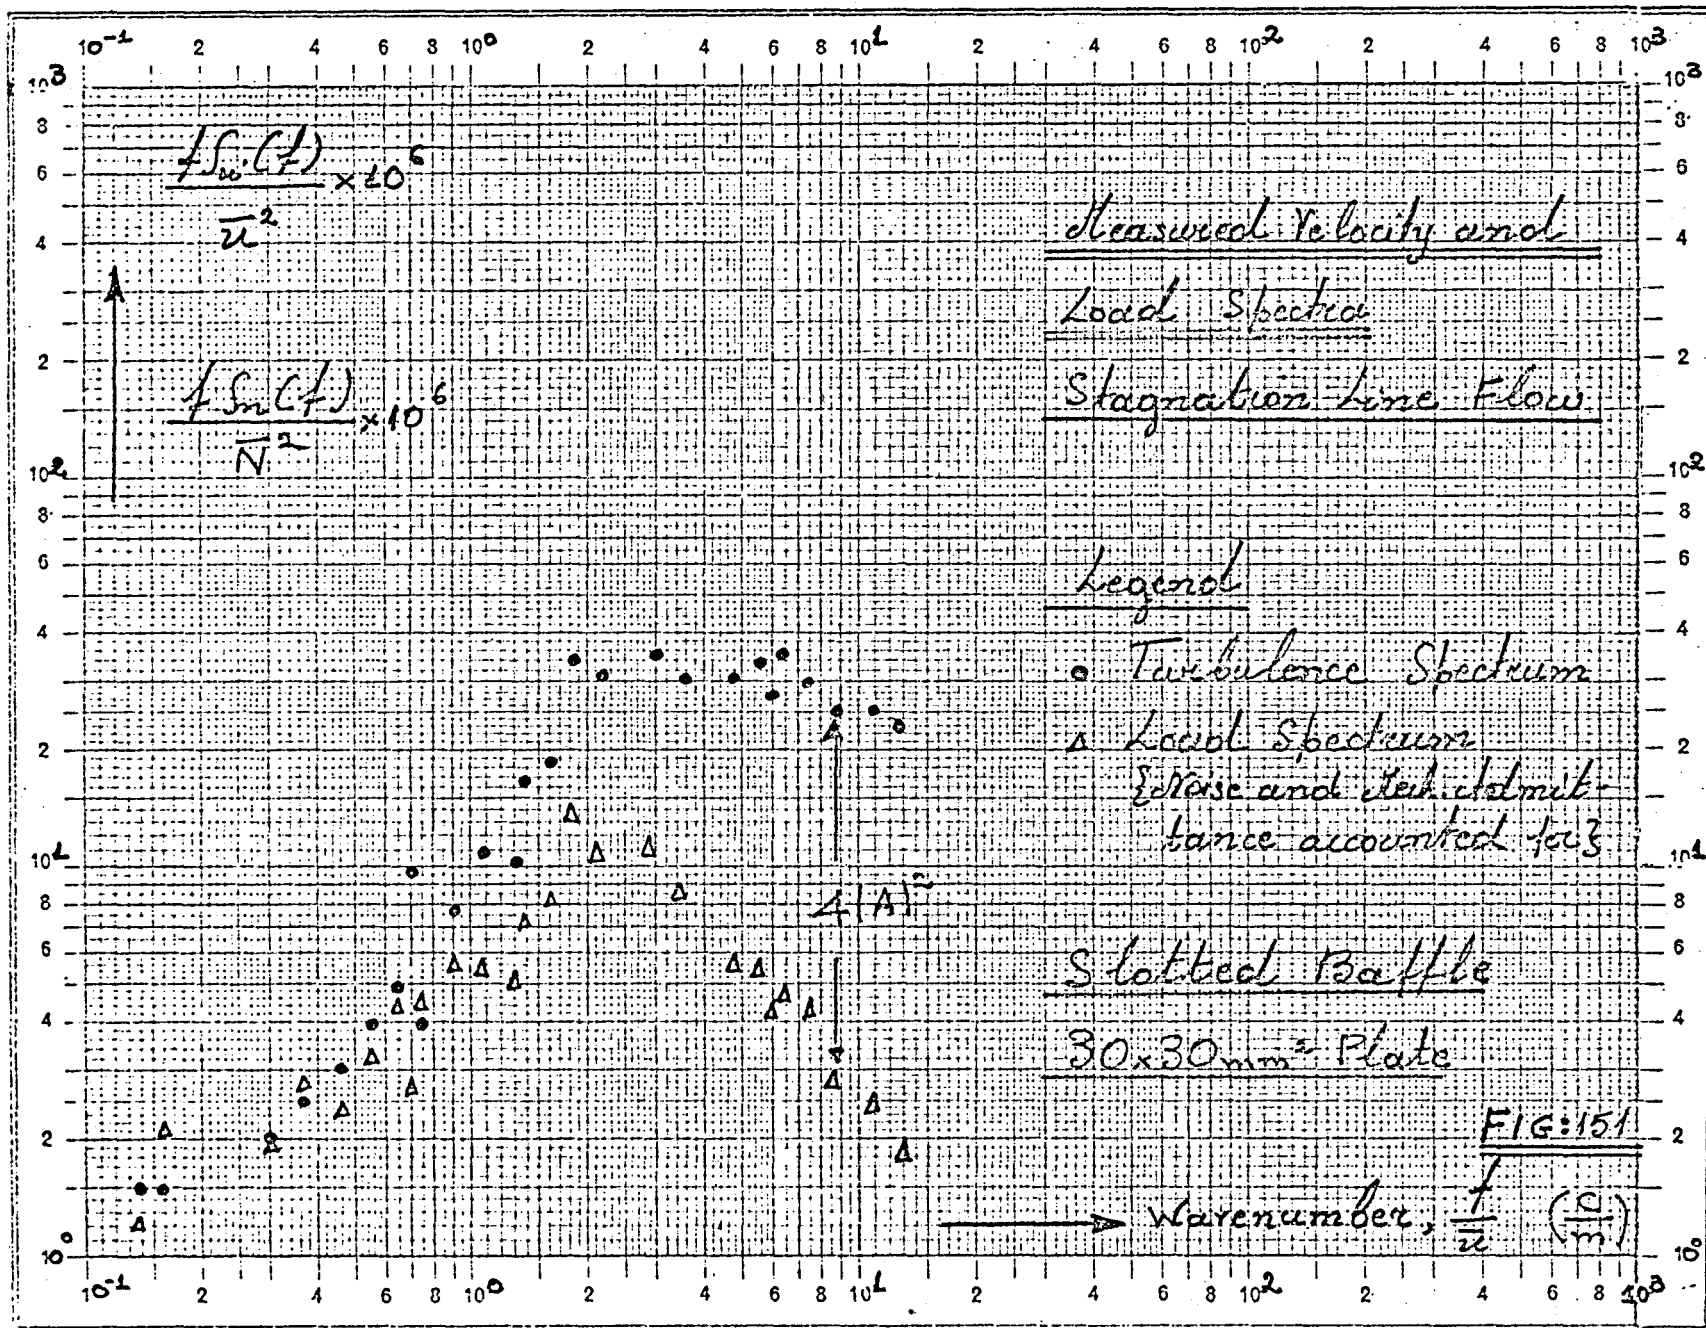 10-1 2 4 6 8 10⁰ 2 4 6 8 10¹ 2 4 6 8 10² 2 4 6 8 10³
10³ 8 6 4 2 10² 8 6 4 2 10¹ 8 6 4 2 10⁰
f Su(f) / ū² × 10⁶
f Sn(f) / N̄² × 10⁶
Measured Velocity and
Load Spectra
Stagnation Line Flow
Legend
Turbulence Spectrum
Δ Load Spectrum
{Noise and Mech. Admit-
tance accounted for}
4|A|²
Slotted Baffle
30x30mm² Plate
FIG:151
Wavenumber, f/ū (c/m)
10³ 8 6 4 2 10² 8 6 4 2 10¹ 8 6 4 2 10⁰
10-1 2 4 6 8 10⁰ 2 4 6 8 10¹ 2 4 6 8 10² 2 4 6 8 10³